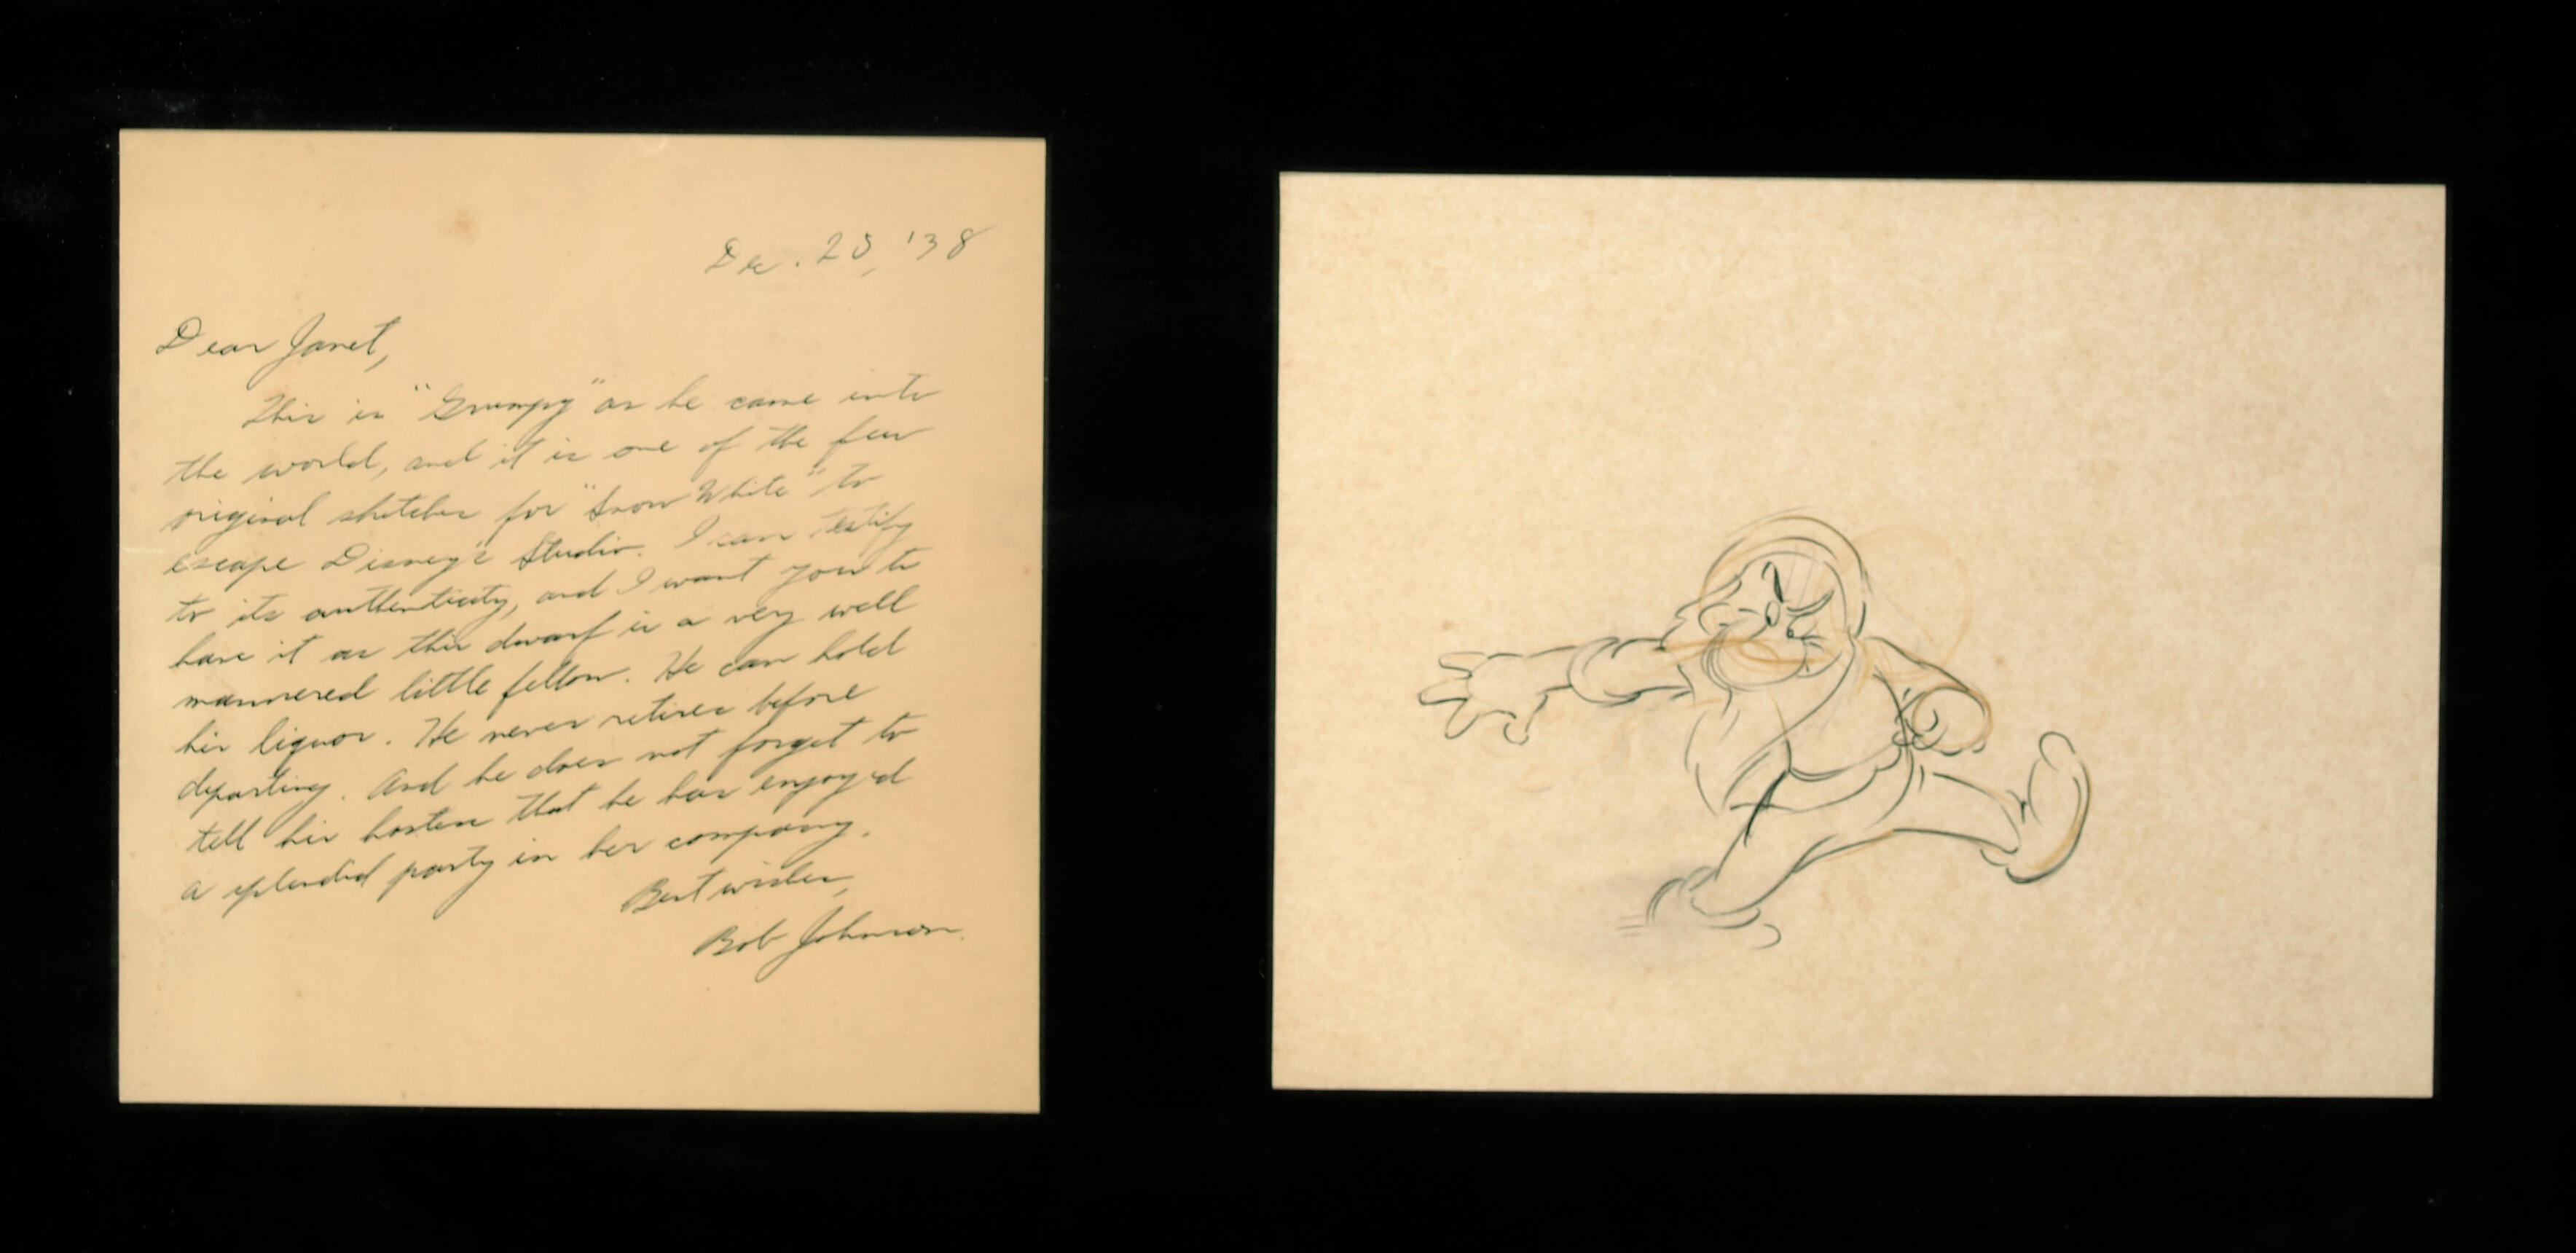 Dec. 25, '38
Dear Janet,
This is "Grumpy" as he came into
the world, and it is one of the few
original sketches for "Snow White" to
escape Disney's Studio. I can testify
to its authenticity, and I want you to
have it as this dwarf is a very well
mannered little fellow. He can hold
his liquor. He never retires before
departing. And he does not forget to
tell his hostess that he has enjoyed
a splendid party in her company.
Best wishes,
Bob Johnson.